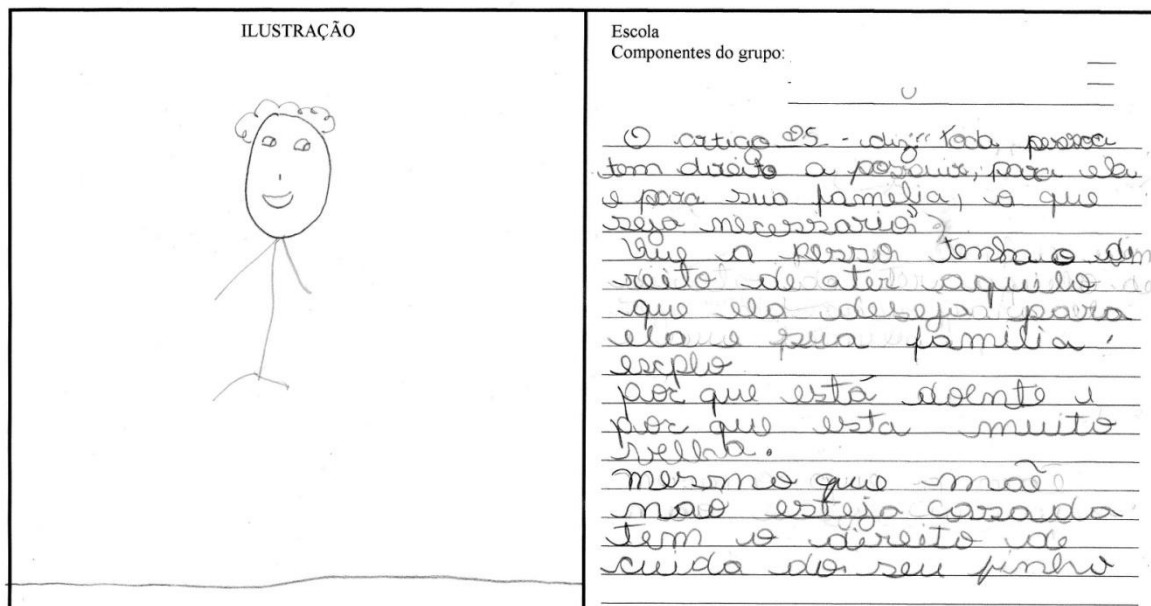 ILUSTRAÇÃO
Escola
Componentes do grupo:
O artigo 25 - diz: "toda pessoa
tem direito a possuir, para ela
e para sua famelia, o que
seja necessario"
Que a pesso tenha o di
reito de ater aquilo
que ela deseja para
ela e sua familia.
explo
por que está doente e
por que esta muito
velha.
mesmo que mãe
nao esteja casada
tem o direito de
cuida do seu finho